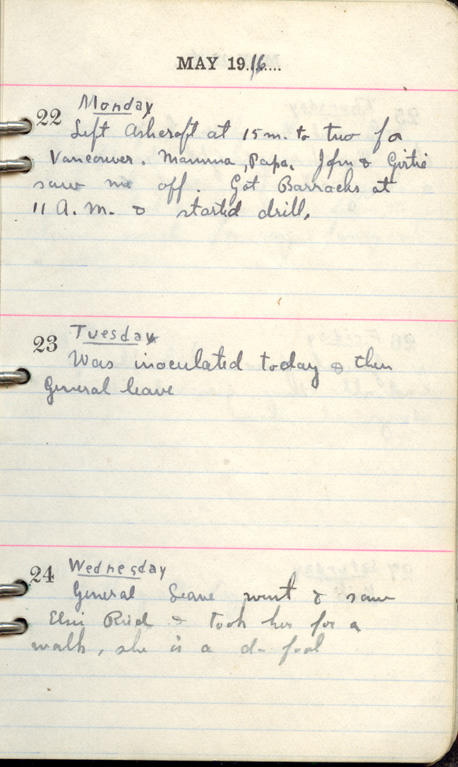 MAY 1916....
22 Monday
Left Ashcroft at 15 m. to two for
Vancouver. Mamma, Papa, John & Girtie
saw me off. Got Barracks at
11 A.M. & started drill.
23 Tuesday
Was inoculated today & then
General leave
24 Wednesday
General Leave went & saw
Elsie Reid & took her for a
walk, she is a d- fool